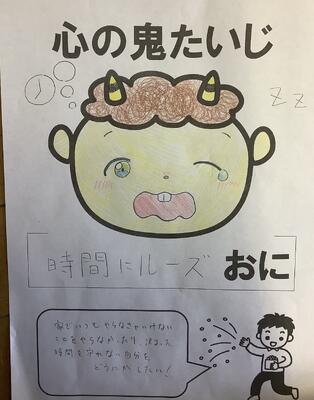 心の鬼たいじ
z z
時間にルーズ おに
家でいつもやらなきゃいけない
ことをやらなかったり、決まった
時間を守れない自分を、
どうにかしたい!